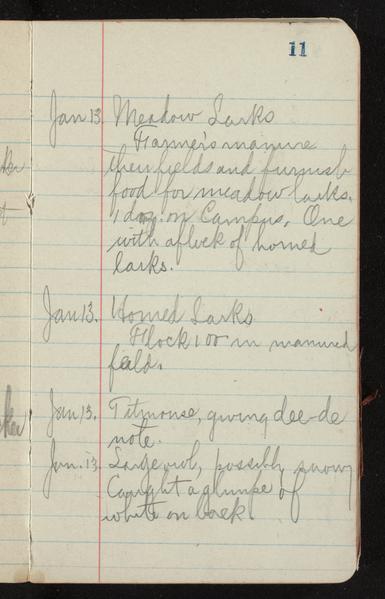 11
Jan 13. Meadow Larks
Farmers manure
their fields and furnish
food for meadow larks.
1 doz. on Campus. One
with a flock of horned
larks.
Jan 13. Horned Larks
Flock 100 in manured
field.
Jan 13. Titmouse, giving dee-de
note.
Jan. 13 Large owl, possibly snowy
Caught a glimpse of
white on back.